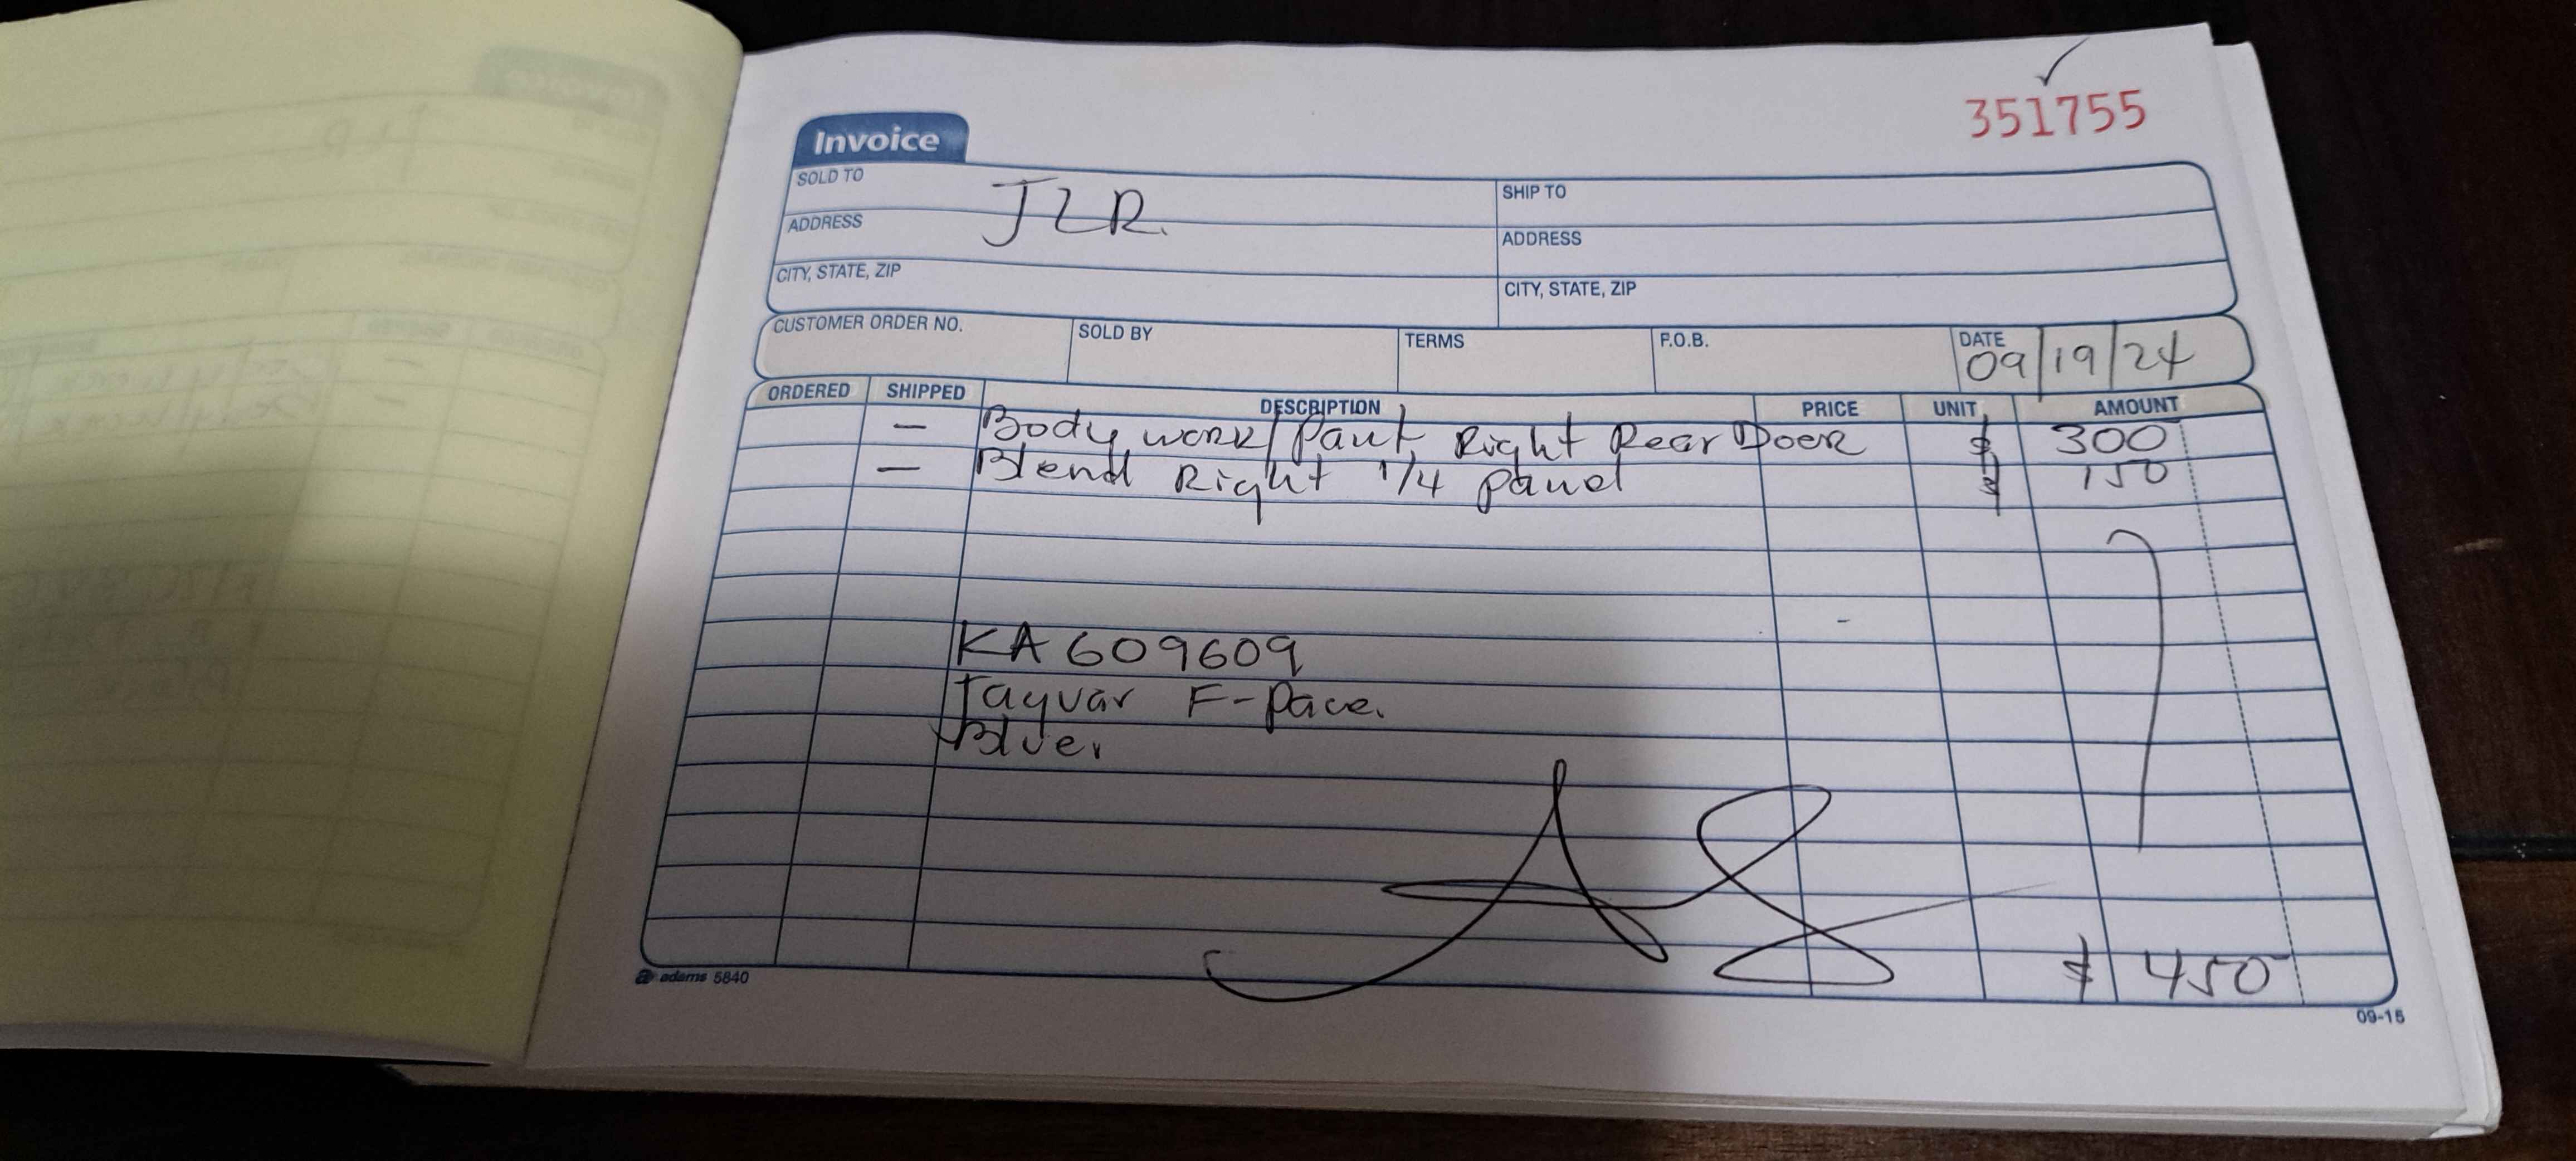 351755
Invoice
SOLD TO JLR.
SHIP TO
ADDRESS
ADDRESS
CITY, STATE, ZIP
CITY, STATE, ZIP
CUSTOMER ORDER NO. SOLD BY TERMS F.O.B. DATE 09/19/24
ORDERED SHIPPED DESCRIPTION PRICE UNIT AMOUNT
— Body work/Paint Right Rear Door $ 300
— Blend Right 1/4 panel $ 150
KA609609
Jaguar F-Pace.
Blue.
$ 450
adams 5840
09-15